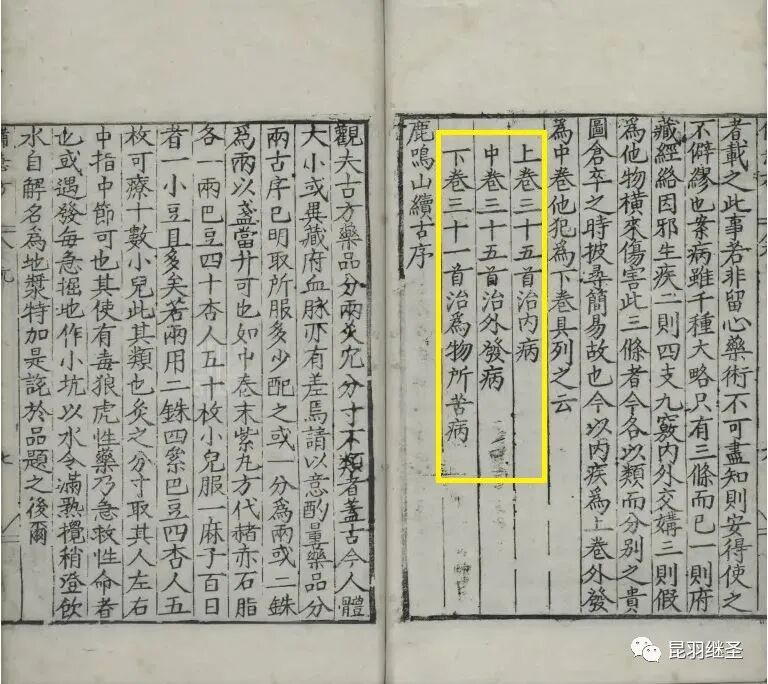 者載之此事若非留心藥術不可盡知則安得使之
不僻繆也案病雖千種大略只有三條而已一則府
藏經絡因邪生疾二則四支九竅內外交媾三則假
爲他物橫來傷害此三條者今各以類而分別之貴
圖倉卒之時披尋簡易故也今以內疾爲上卷外發
爲中卷他犯爲下卷具列之云
上卷三十五首治內病
中卷三十五首治外發病
下卷三十一首治爲物所苦病
鹿鳴山續古序
觀夫古方藥品分兩灸穴分寸不類者蓋古今人體
大小或異藏府血脉亦有差焉請以意酌量藥品分
兩古序已明取所服多少配之或一分爲兩或二銖
爲兩以盞當升可也如中卷末紫丸方代赭赤石脂
各一兩巴豆四十杏人五十枚小兒服一麻子百日
者一小豆且多矣若兩用二銖四絫巴豆四杏人五
枚可療十數小兒此其類也灸之分寸取其人左右
中指中節可也其使有毒狼虎性藥乃急救性命者
也或遇發毎急掘地作小坑以水令滿熟攪稍澄飲
水自解名爲地漿特加是說於品題之後爾
昆羽继圣